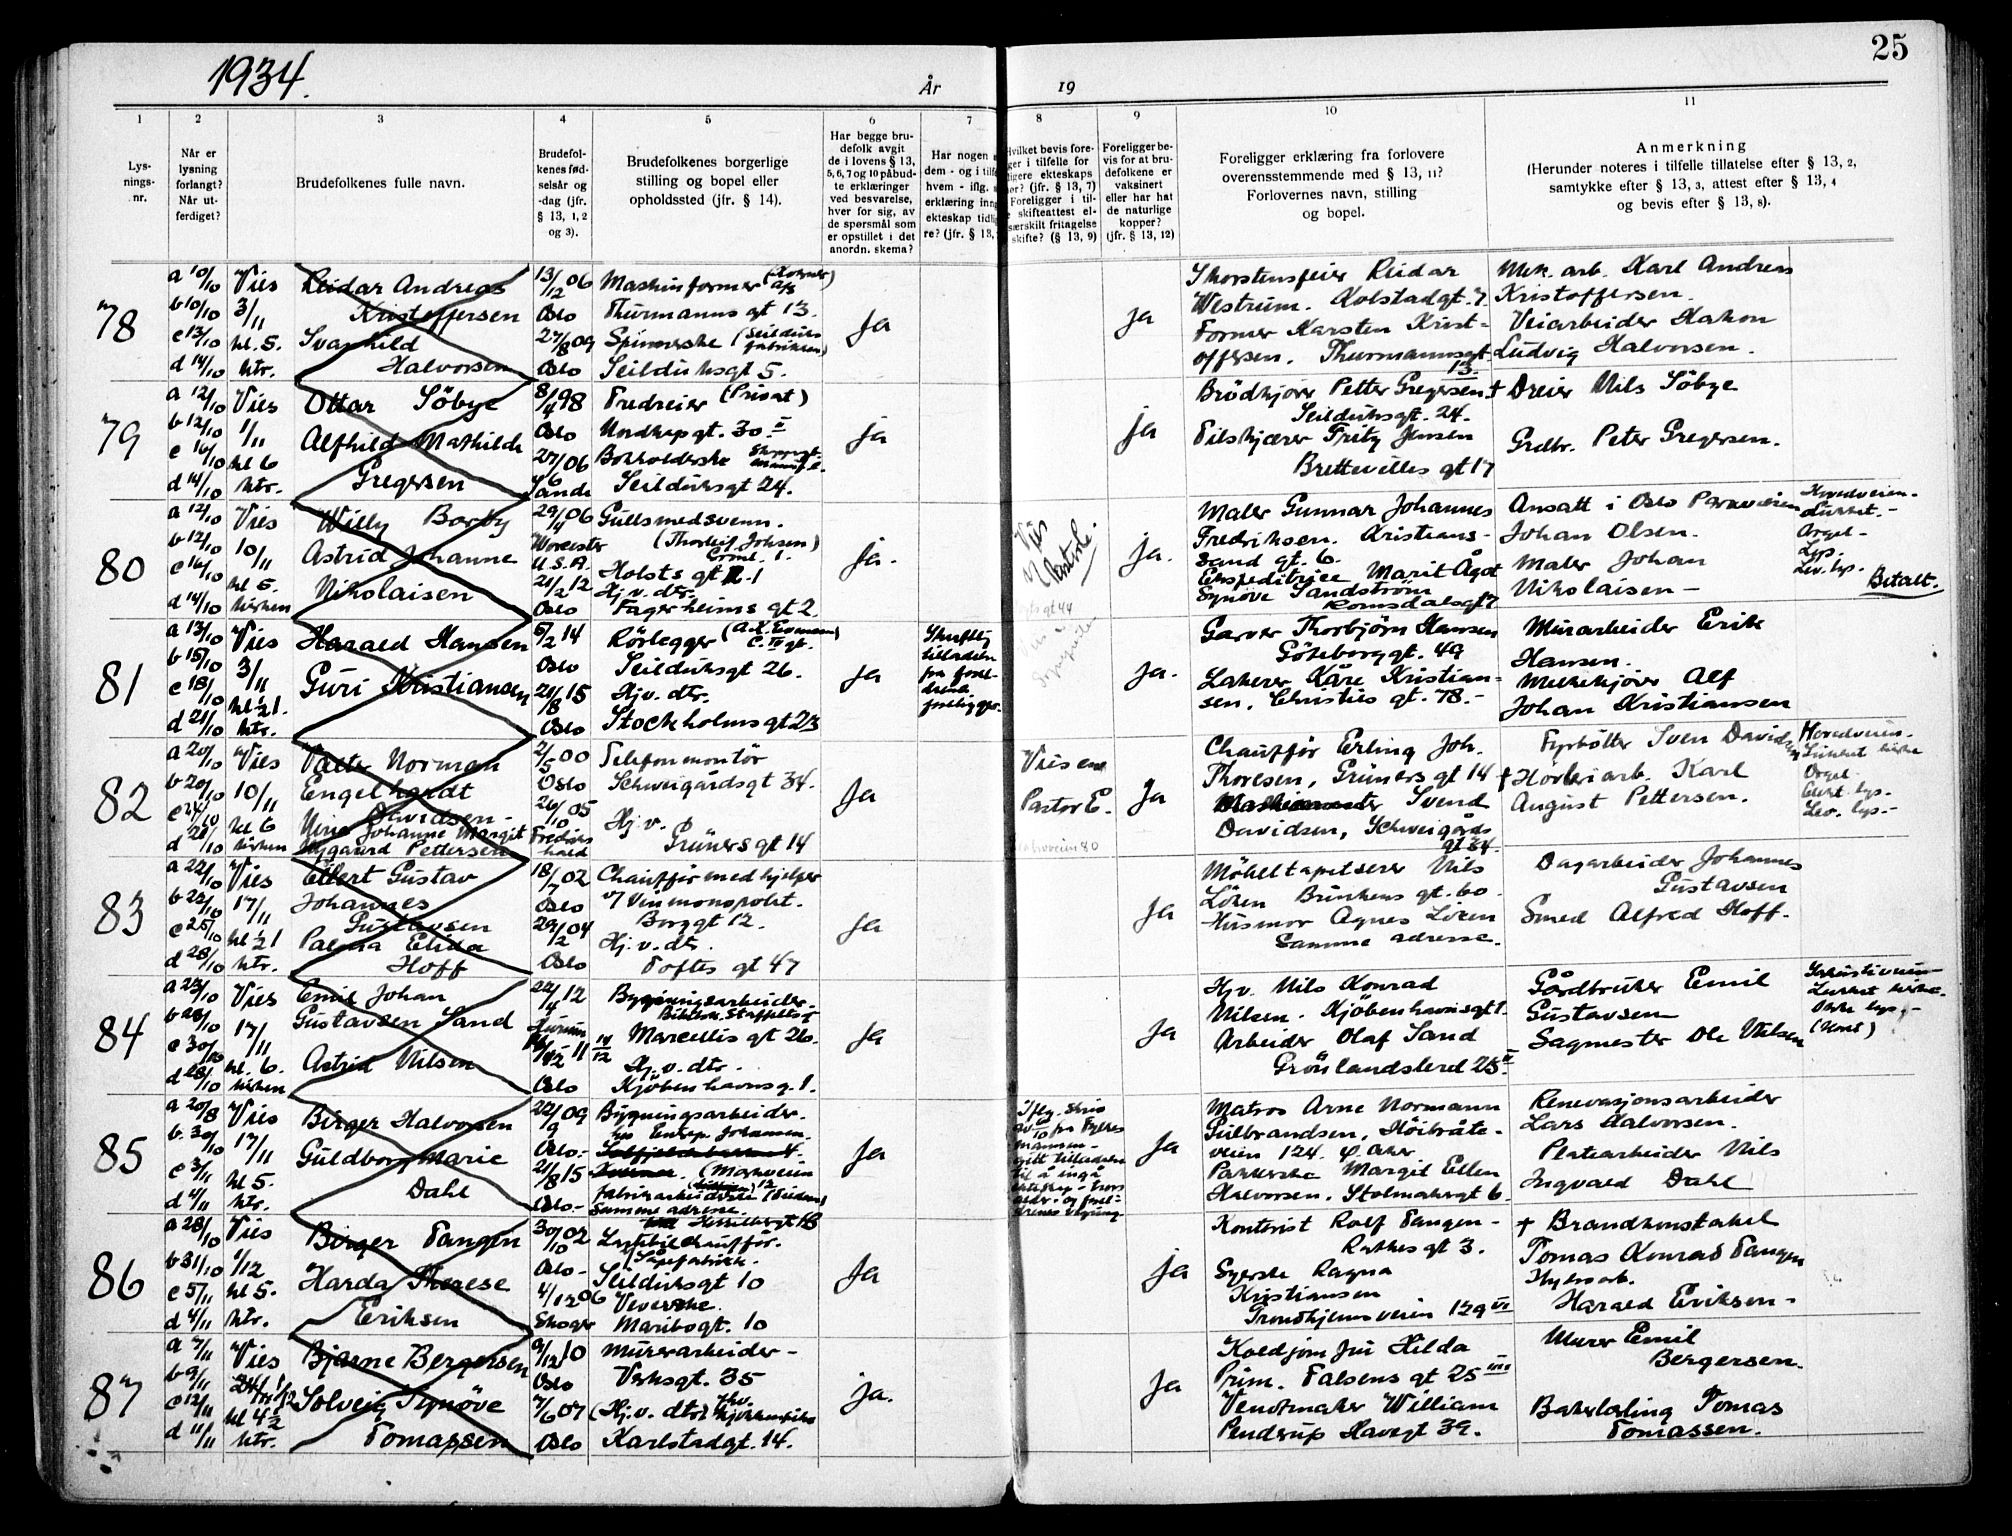 1934.
År
19
25
1
2
3
4
5
6
7
8
9
10
11
Lys-
nings-
nr.
Når er
lysning
forlangt?
Når ut-
ferdiget?
Brudefolkenes fulle navn.
Brudefol-
kenes fød-
selsår og
-dag (jfr.
§ 13, 1, 2
og 3).
Brudefolkenes borgerlige
stilling og bopel eller
opholdssted (jfr. § 14).
Har begge bru-
defolk avgit
de i lovens § 13,
5, 6, 7 og 10 påbud-
te erklæringer
ved besvarelse,
hver for sig, av
de spørsmål som
er opstillet i det
anordn. skema?
Har nogen
dem - og i tilf
hvem - iflg.
erklæring inng
ekteskap tidlig
re? (jfr. § 13,
Hvilket bevis fore-
ger i tilfelle for
ligere ekteskaps
er? (jfr. § 13, 7)
Foreligger i til-
e skifteattest el-
særskilt fritagelse
skifte? (§ 13, 9)
Foreligger be-
vis for at bru-
defolkene er
vaksinert
eller har hat
de naturlige
kopper?
(jfr. § 13, 12)
Foreligger erklæring fra forlovere
overensstemmende med § 13, 11?
Forlovernes navn, stilling
og bopel.
Anmerkning
(Herunder noteres i tilfelle tillatelse efter § 13, 2,
samtykke efter § 13, 3, attest efter § 13, 4
og bevis efter § 13, 8).
78
a 10/10 Vies
b 10/10 3/11
c 13/10 kl. 5.
d 14/10 ktr.
Reidar Andreas
Kristoffersen
Svanhild
Halvorsen
13/12 06
Oslo
27/8 09
Oslo
Maskinformer
Thurmanns gt 13.
Spinnerske (Seilduks
fabrikken)
Seilduksgt 5.
Ja
Ja
Skorstensfeier Reidar
Westrum. Kolstadgt. 7.
Former Karsten Krist-
offersen. Thurmannsgt.
13.
Mek. arb. Karl Andreas
Kristoffersen.
Veiarbeider Hakon
Ludvig Halvorsen.
79
a 12/10 Vies
b 12/10 1/11
c 16/10 kl 6
d 14/10 ktr.
Ottar Söbye
Alfhild Mathilde
Gregersen
8/4 98
Oslo
27/6 06
Sande
Tredreier (Privat)
Nordkapgt. 30 II
Bokholderske
Seilduksgt 24.
ja
ja
Brödkjører Petter Gregersen
Seilduksgt. 24.
Pilskjærer Fritz Jensen
Brettevilles gt 17
+ Dreier Nils Söbye
Grdbr. Peter Gregersen.
80
a 12/10 Vies
b 12/10 10/11
c 16/10 kl 5.
d 14/10 kirken
Willy Borby
Astrid Johanne
Nikolaisen
29/4 06
Worcester
U.S.A.
21/2 12
Oslo
Gullsmedsvenn.
Holsts gt 1
Hj. v. dtr.
Fagerheims gt 2.
Ja.
ja.
Maler Gunnar Johannes
Fredriksen. Kristians-
sand gt. 6.
Ekspeditrice Marit Ågot
Synøve Sandström
Romsdalsgt 7
Ansatt i Oslo Paraveien
Johan Olsen.
Maler Johan
Nikolaisen -
Hovedveien.
Lukket.
Orgel -
Lys.
Lev. lys.
Betalt.
81
a 13/10 Vies
b 15/10 3/11
c 18/10 kl ½1.
d 21/10 ktr.
Harald Hansen
Guri Kristiansen
5/2 14
Oslo
21/8 15
Oslo
Rörlegger
Seilduksgt 26.
Hj. v. dtr.
Stockholms gt 23
Ja
Skriftlig
tilladelse
fra forel-
drene
foreligger.
Ja.
Garver Thorbjörn Hansen
Göteborggt. 49
Lakerer Kåre Kristian-
sen, Christies gt. 78. -
Murarbeider Erik
Hansen.
Melkekjörer Alf
Johan Kristiansen
82
a 20/10 Vies
b 20/10 10/11
c 24/10 kl 6
d 21/10 kirken
Valter Norman
Engelhardt
Davidsen -
Johanne Margit
Nygaard Pettersen
2/5 00
Oslo
26/10 05
Fredriks
hald
Telefonmontör
Schweigårdsgt 34.
Hj. v.
Grüners gt 14
Ja
Vies en
Pastor E.
Ja
Chaufför Erling Joh.
Thoresen, Grüners gt 14
Svend
Davidsen, Schweigårds
gt 34.
Fyrbötter Sven Davidsen
+ Karl
August Pettersen.
Hovedveien.
Lukket kirke
Orgel
Lev. lys -
83
a 22/10 Vies
b 22/10 17/11
c 25/10 kl ½1
d 28/10 ktr.
Ellert Gustav
Johannes
Gustavsen
Palma Elida
Hoff
18/7 02
Oslo
29/2 04
Oslo
Chaufför med hjelper
v/ Vinmonopolet.
Borggt 12.
Hj. v. dtr.
Toftes gt 47
Ja
Ja
Möbeltapetserer Nils
Löken Brinkens gt. 60
Husmor Agnes Löken
Samme adresse.
Dagarbeider Johannes
Gustavsen
Smed Alfred Hoff.
84
a 23/10 Vies
b 28/10 17/11
c 30/10 kl. 6.
d 28/10 kirken
Emil Johan
Gustavsen Sand
Astrid Nilsen
22/4 12
Hurum
11 14/12
Oslo
Bygningsarbeider.
Marcellis gt 26.
Hj. v. dtr.
Kjöbenhavns g. 1.
Ja
Ja
Hj. v. Nils Konrad
Nilsen. Kjöbenhavnsgt 1.
Arbeider Olaf Sand
Grönlandsleret 25 II
Gårdbruker Emil
Gustavsen
Sagmester Ole Nilsen
Lukket kirke.
85
a 20/8 Vies
b. 30/10 17/11
c 3/11 kl 5.
d 4/11 ktr.
Birger Halvorsen
Guldborg Marie
Dahl
22/9 09
Oslo -
21/8 15
Oslo -
Bygningsarbeider.
hos Entrep. Johansen.
(Markveien
12
Samme adresse.
Ja
Ja
Matros Arne Normann
Gulbrandsen, Höibråte-
veien 124. Ø. Aker
Pakkerske Margit Ellen
Halvorsen. Stolmakergt 6.
Renovasjonsarbeider
Lars Halvorsen.
Platearbeider Nils
Ingvald Dahl
86
a 28/10 Vies
b 31/10 1/12
c 5/11 kl 5.
d 4/11 ktr.
Birger Tangen
Harda Therese
Eriksen
30/10 02
Oslo -
4/12 06
Skoger
Lastebilchaufför.
(Såpefabrikk.
Seilduksgt 10
Veverske.
Maribogt. 10
Ja
ja
Kontorist Rolf Tangen -
Rathkes gt 3.
Syerske Ragna
Kristiansen
Trondhjemsveien 129 VI
+ Brandkonstabel
Tomas Konrad Tangen
Harald Eriksen -
87
a 7/11 Vies
b 9/11
c 12/11 kl 4½
d 11/11 ktr.
Bjarne Bergersen
Solveig Synöve
Tomassen
9/12 10
Oslo
7/6 07
Oslo
Murerarbeider -
Verksgt. 35
(Hj. v. dtr)
Karlstadgt. 14.
ja.
Ja
Hilda
Prim. Falsens gt 25
Venotmaker William
Penderup Havegt 39.
Murer Emil
Bergersen.
Bakerlærling Tomas
Tomassen.